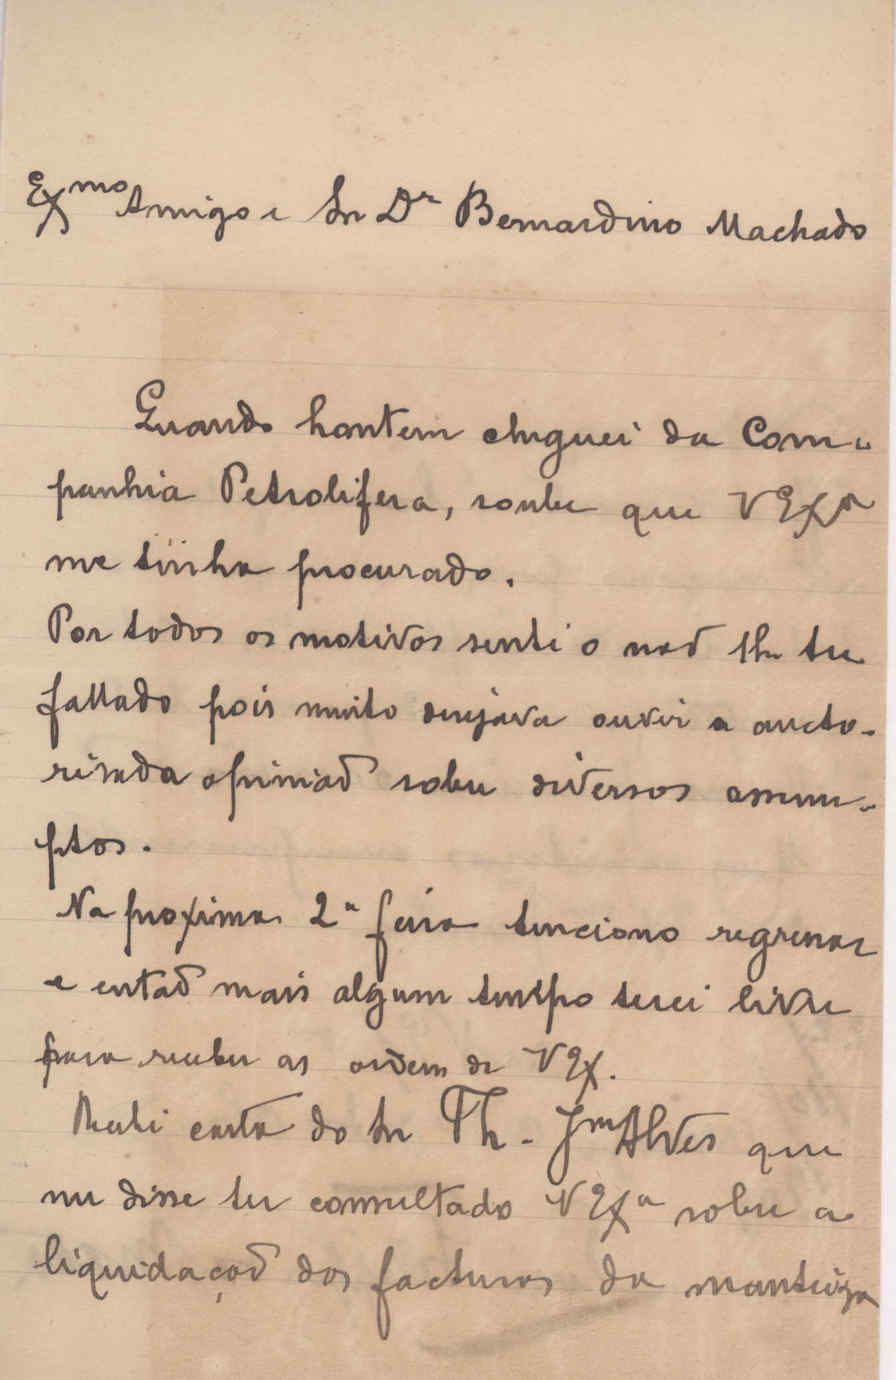 Exmo Amigo e Snr Dr Bernardino Machado
Quando hontem cheguei da Com-
panhia Petrolifera, soube que V Exa
me tinha procurado.
Por todos os motivos senti o não lhe ter
fallado pois muito desejava ouvir a aucto-
risada opinião sobre diversos assum-
ptos.
Na proxima 2a feira tenciono regressar
e então mais algum tempo terei livre
para receber as ordens de V Ex.
Recebi carta do Snr Th. Jm Alves que
me disse ter consultado V Exa sobre a
liquidação dos facturas da manteiga